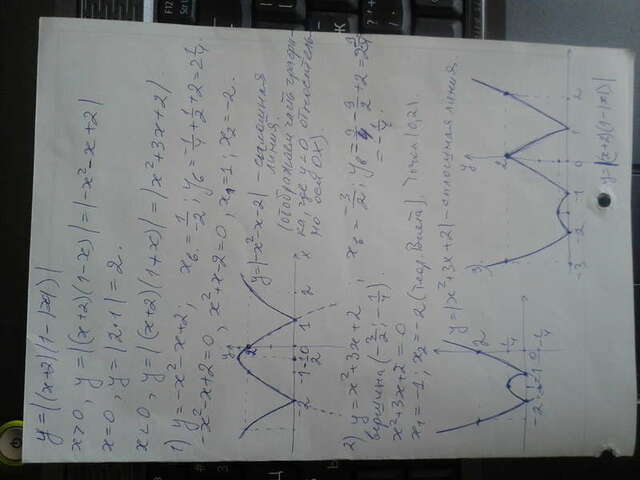 y=|(x+2)(1-|x|)|
x>0, y=|(x+2)(1-x)|=|-x²-x+2|
x=0, y=|2·1|=2.
x<0, y=|(x+2)(1+x)|=|x²+3x+2|
1) y=-x²-x+2; x_в=1/-2; y_в=-1/4+1/2+2=2 1/4.
-x²-x+2=0, x²+x-2=0, x₁=1; x₂=-2.
y=|-x²-x-2| - сплошная
линия.
(отображаем часть графи-
ка, где y<0 относитель-
но оси OX).
y
2
-2 -1 -1/2 0 1 2 x
2) y=x²+3x+2, x_в=-3/2; y_в=9/4-9/2+2=2 1/4
=-1/4.
вершина (-3/2; -1/4)
x²+3x+2=0
x₁=-1; x₂=-2 (теор Виета). Точка (0,2).
y=|x²+3x+2| - сплошная линия.
2
1/4
-1/4
-2 -1 0
3
y
2
-3 -2 -1 0 1 2
y=|(x+2)(1-|x|)|
F12